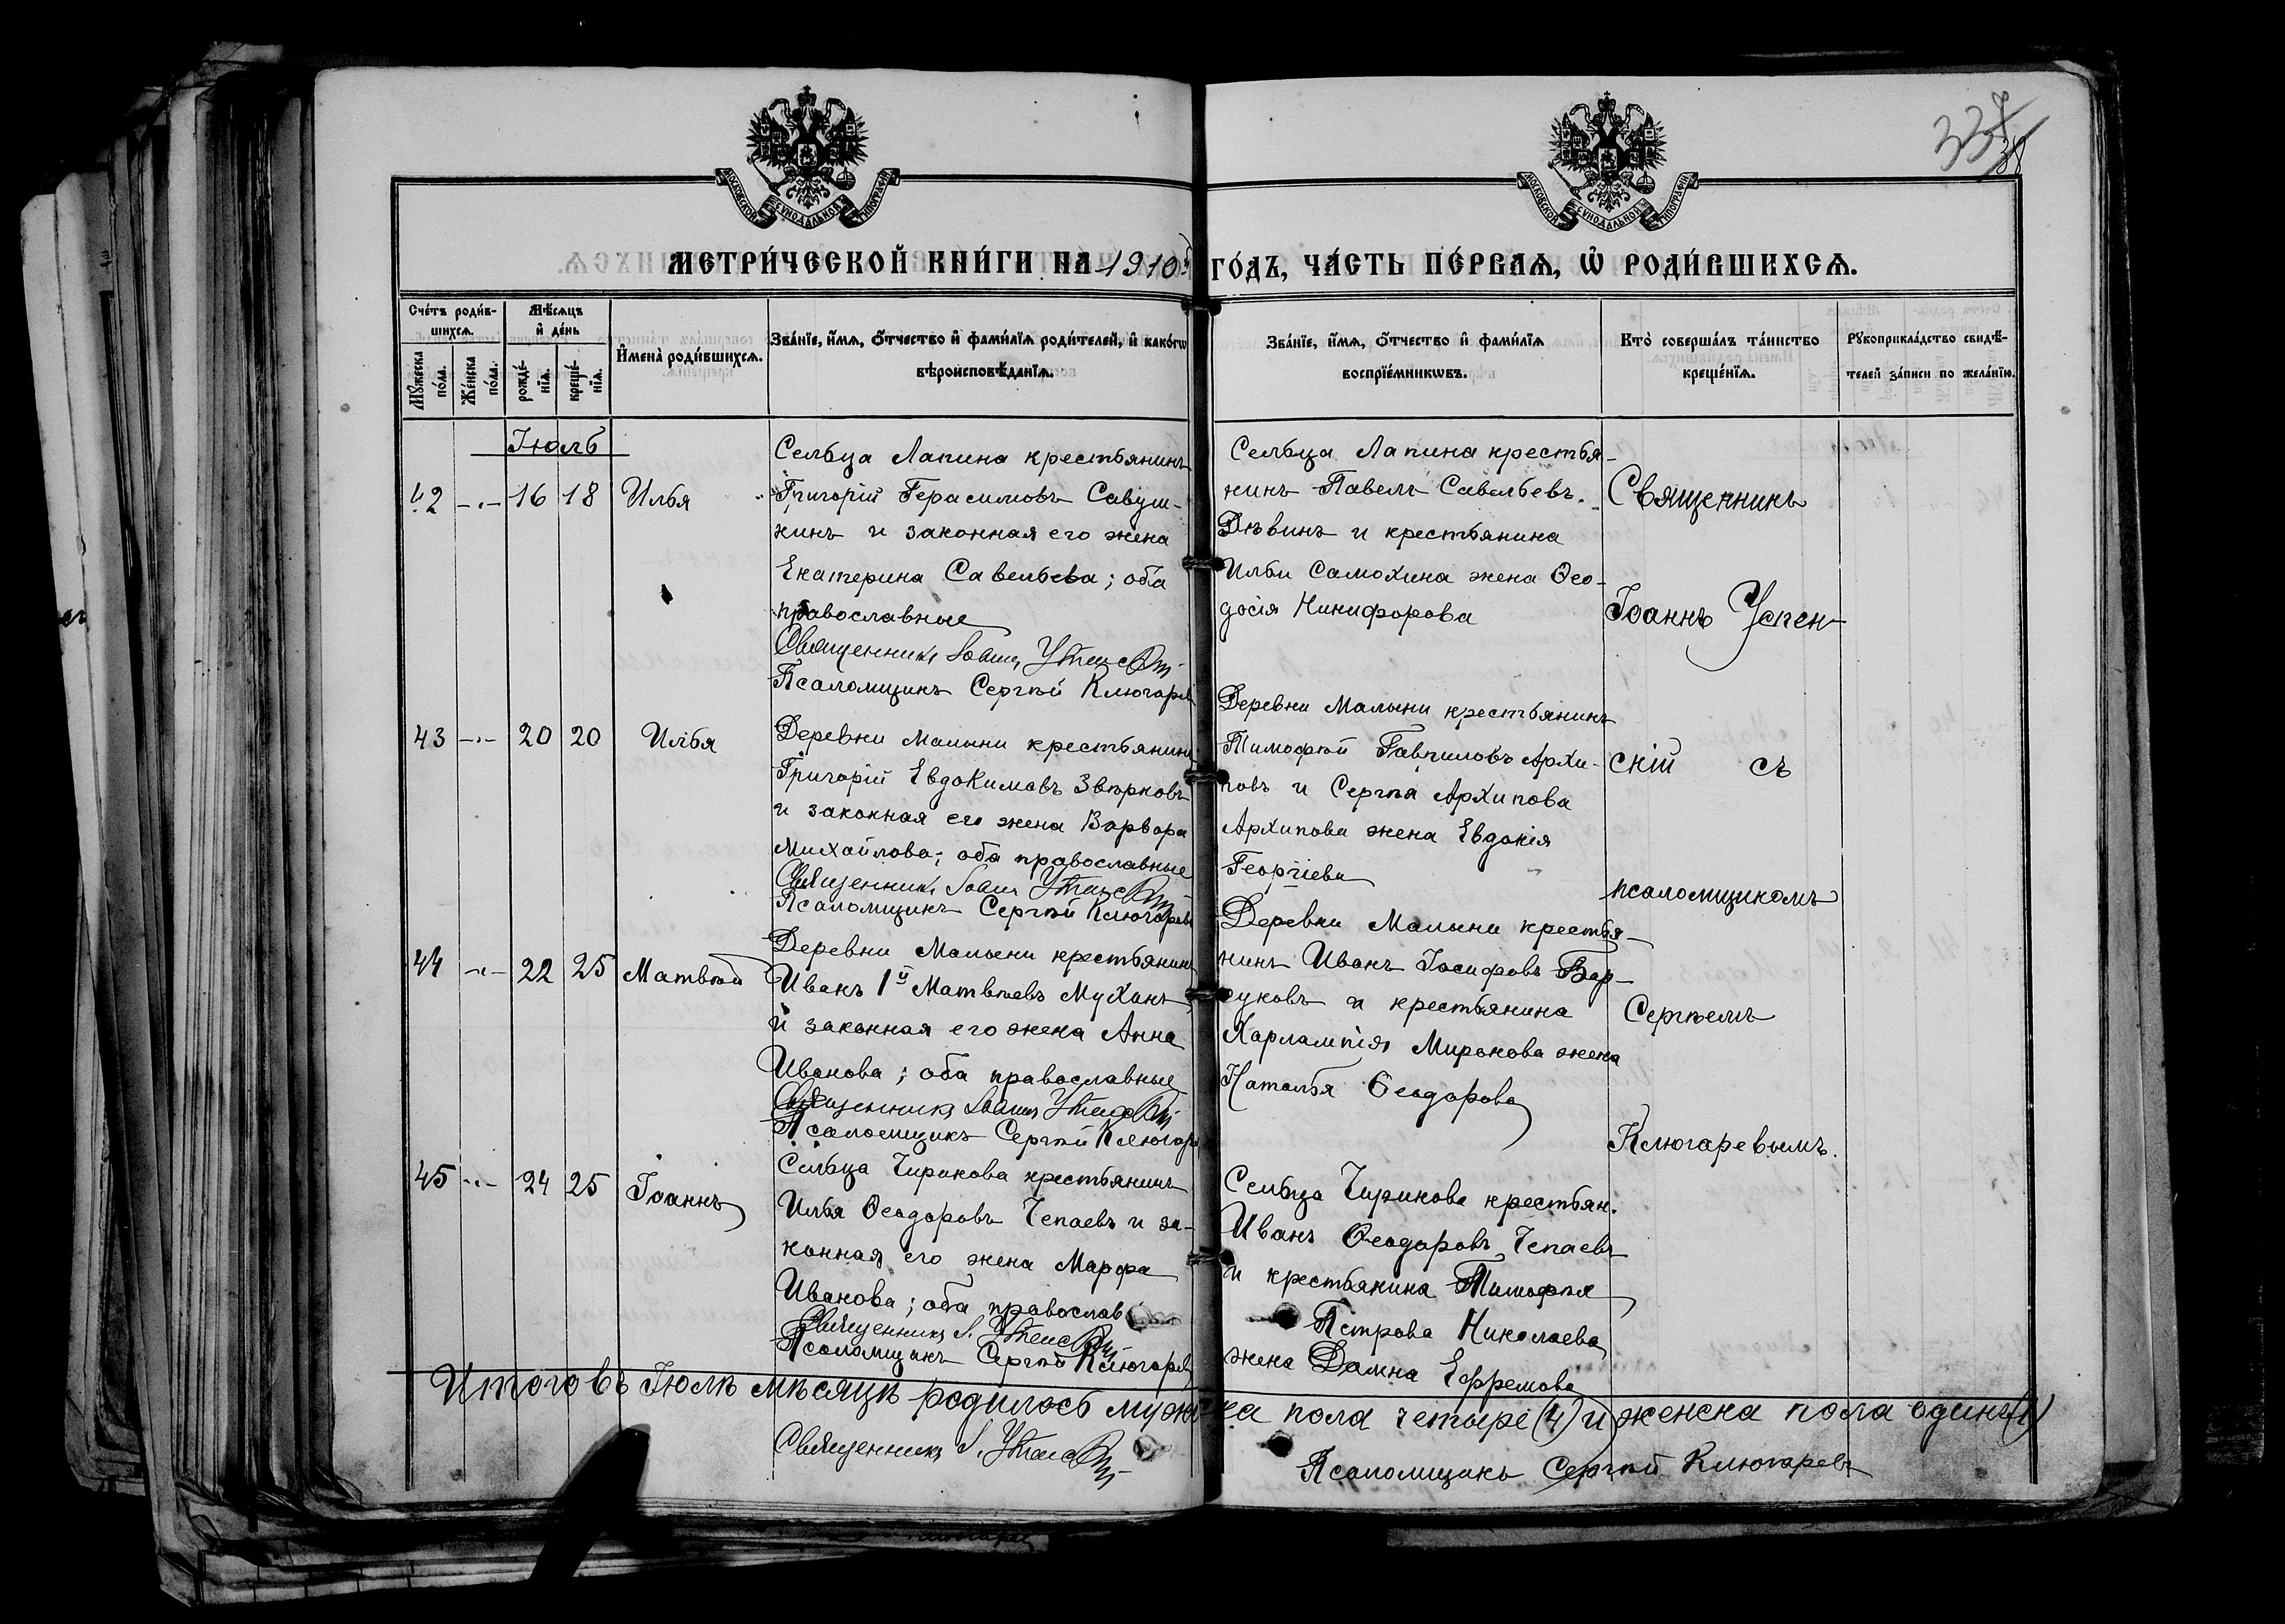 337
38
МОСКОВСКОЙ СѴНОДАЛЬНОЙ ТИПОГРАФІИ
МОСКОВСКОЙ СѴНОДАЛЬНОЙ ТИПОГРАФІИ
МЕТРИ́ЧЕСКОЙ КНИ́ГИ НА 1910й ГО́ДЪ, ЧА́СТЬ ПЕ́РВАѦ, Ѡ҆ РОДИ́ВШИХСѦ.
Сче́тъ роди́в-
шихсѧ.
Мꙋ́жеска по́ла.
Же́нска по́ла.
Мѣ́сѧцъ
и҆ де́нь
рожде́-
нїѧ.
креще́-
нїѧ.
И҆мена̀ роди́вшихсѧ.
Зва́нїе, и҆́мѧ, ѻ҆́тчество и҆ фами́лїѧ роди́телей, и҆ како́гѡ
вѣроисповѣ́данїѧ.
Зва́нїе, и҆́мѧ, ѻ҆́тчество и҆ фами́лїѧ
воспрїе́мникѡвъ.
Кто̀ соверша́лъ та́инство
креще́нїѧ.
Рꙋкоприкла́дство свидѣ́-
телей за́писи по жела́нїю.
Іюль
42 -"- 16 18 Илья
Сельца Лапина крестьянинъ
Григорій Герасимовъ Савуш-
кинъ и законная его жена
Екатерина Савельева; оба
православные
Священникъ Іоаннъ Успенскій
Псаломщикъ Сергѣй Ключарев
Сельца Лапина крестья-
нинъ Павелъ Савельевъ
Дѣвинъ и крестьянина
Ильи Самохина жена Ѳео-
досія Никифорова
Священникъ
Іоаннъ Успен-
скій съ
псаломщикомъ
Сергѣемъ
Ключаревымъ.
43 -"- 20 20 Илья
Деревни Малыни крестьянинъ
Григорій Евдокимовъ Звѣрковъ
и законная его жена Варвара
Михайлова; оба православные
Священникъ Іоаннъ Успенскій
Псаломщикъ Сергѣй Ключаревъ
Деревни Малыни крестьянинъ
Тимофѣй Гавриловъ Архи-
повъ и Сергѣя Архипова
Архипова жена Евдокія
Георгіева
44 -"- 22 25 Матвѣй
Деревни Малыни крестьянинъ
Иванъ 1й Матвѣевъ Муханъ
и законная его жена Анна
Иванова; оба православные
Священникъ Іоаннъ Успенскій
Псаломщикъ Сергѣй Ключаре
Деревни Малыни крестья-
нинъ Иванъ Іосифовъ Бар-
суковъ и крестьянина
Харлампія Миронова жена
Наталья Ѳеодорова
45 -"- 24 25 Іоаннъ
Сельца Чирикова крестьянинъ
Илья Ѳеодоровъ Чепаевъ и за-
конная его жена Марфа
Иванова; оба православ
Священникъ І. Успенскій
Псаломщикъ Сергѣй Ключарев
Сельца Чирикова крестьян.
Иванъ Ѳеодоровъ Чепаевъ
и крестьянина Тимофея
Петрова Николаева
жена Домна Ефремова
Итого въ Іюлѣ мѣсяцѣ родилось мужеска пола четыре (4) и женска пола одинъ (1)
Священникъ І. Успенскій
Псаломщикъ Сергѣй Ключаревъ